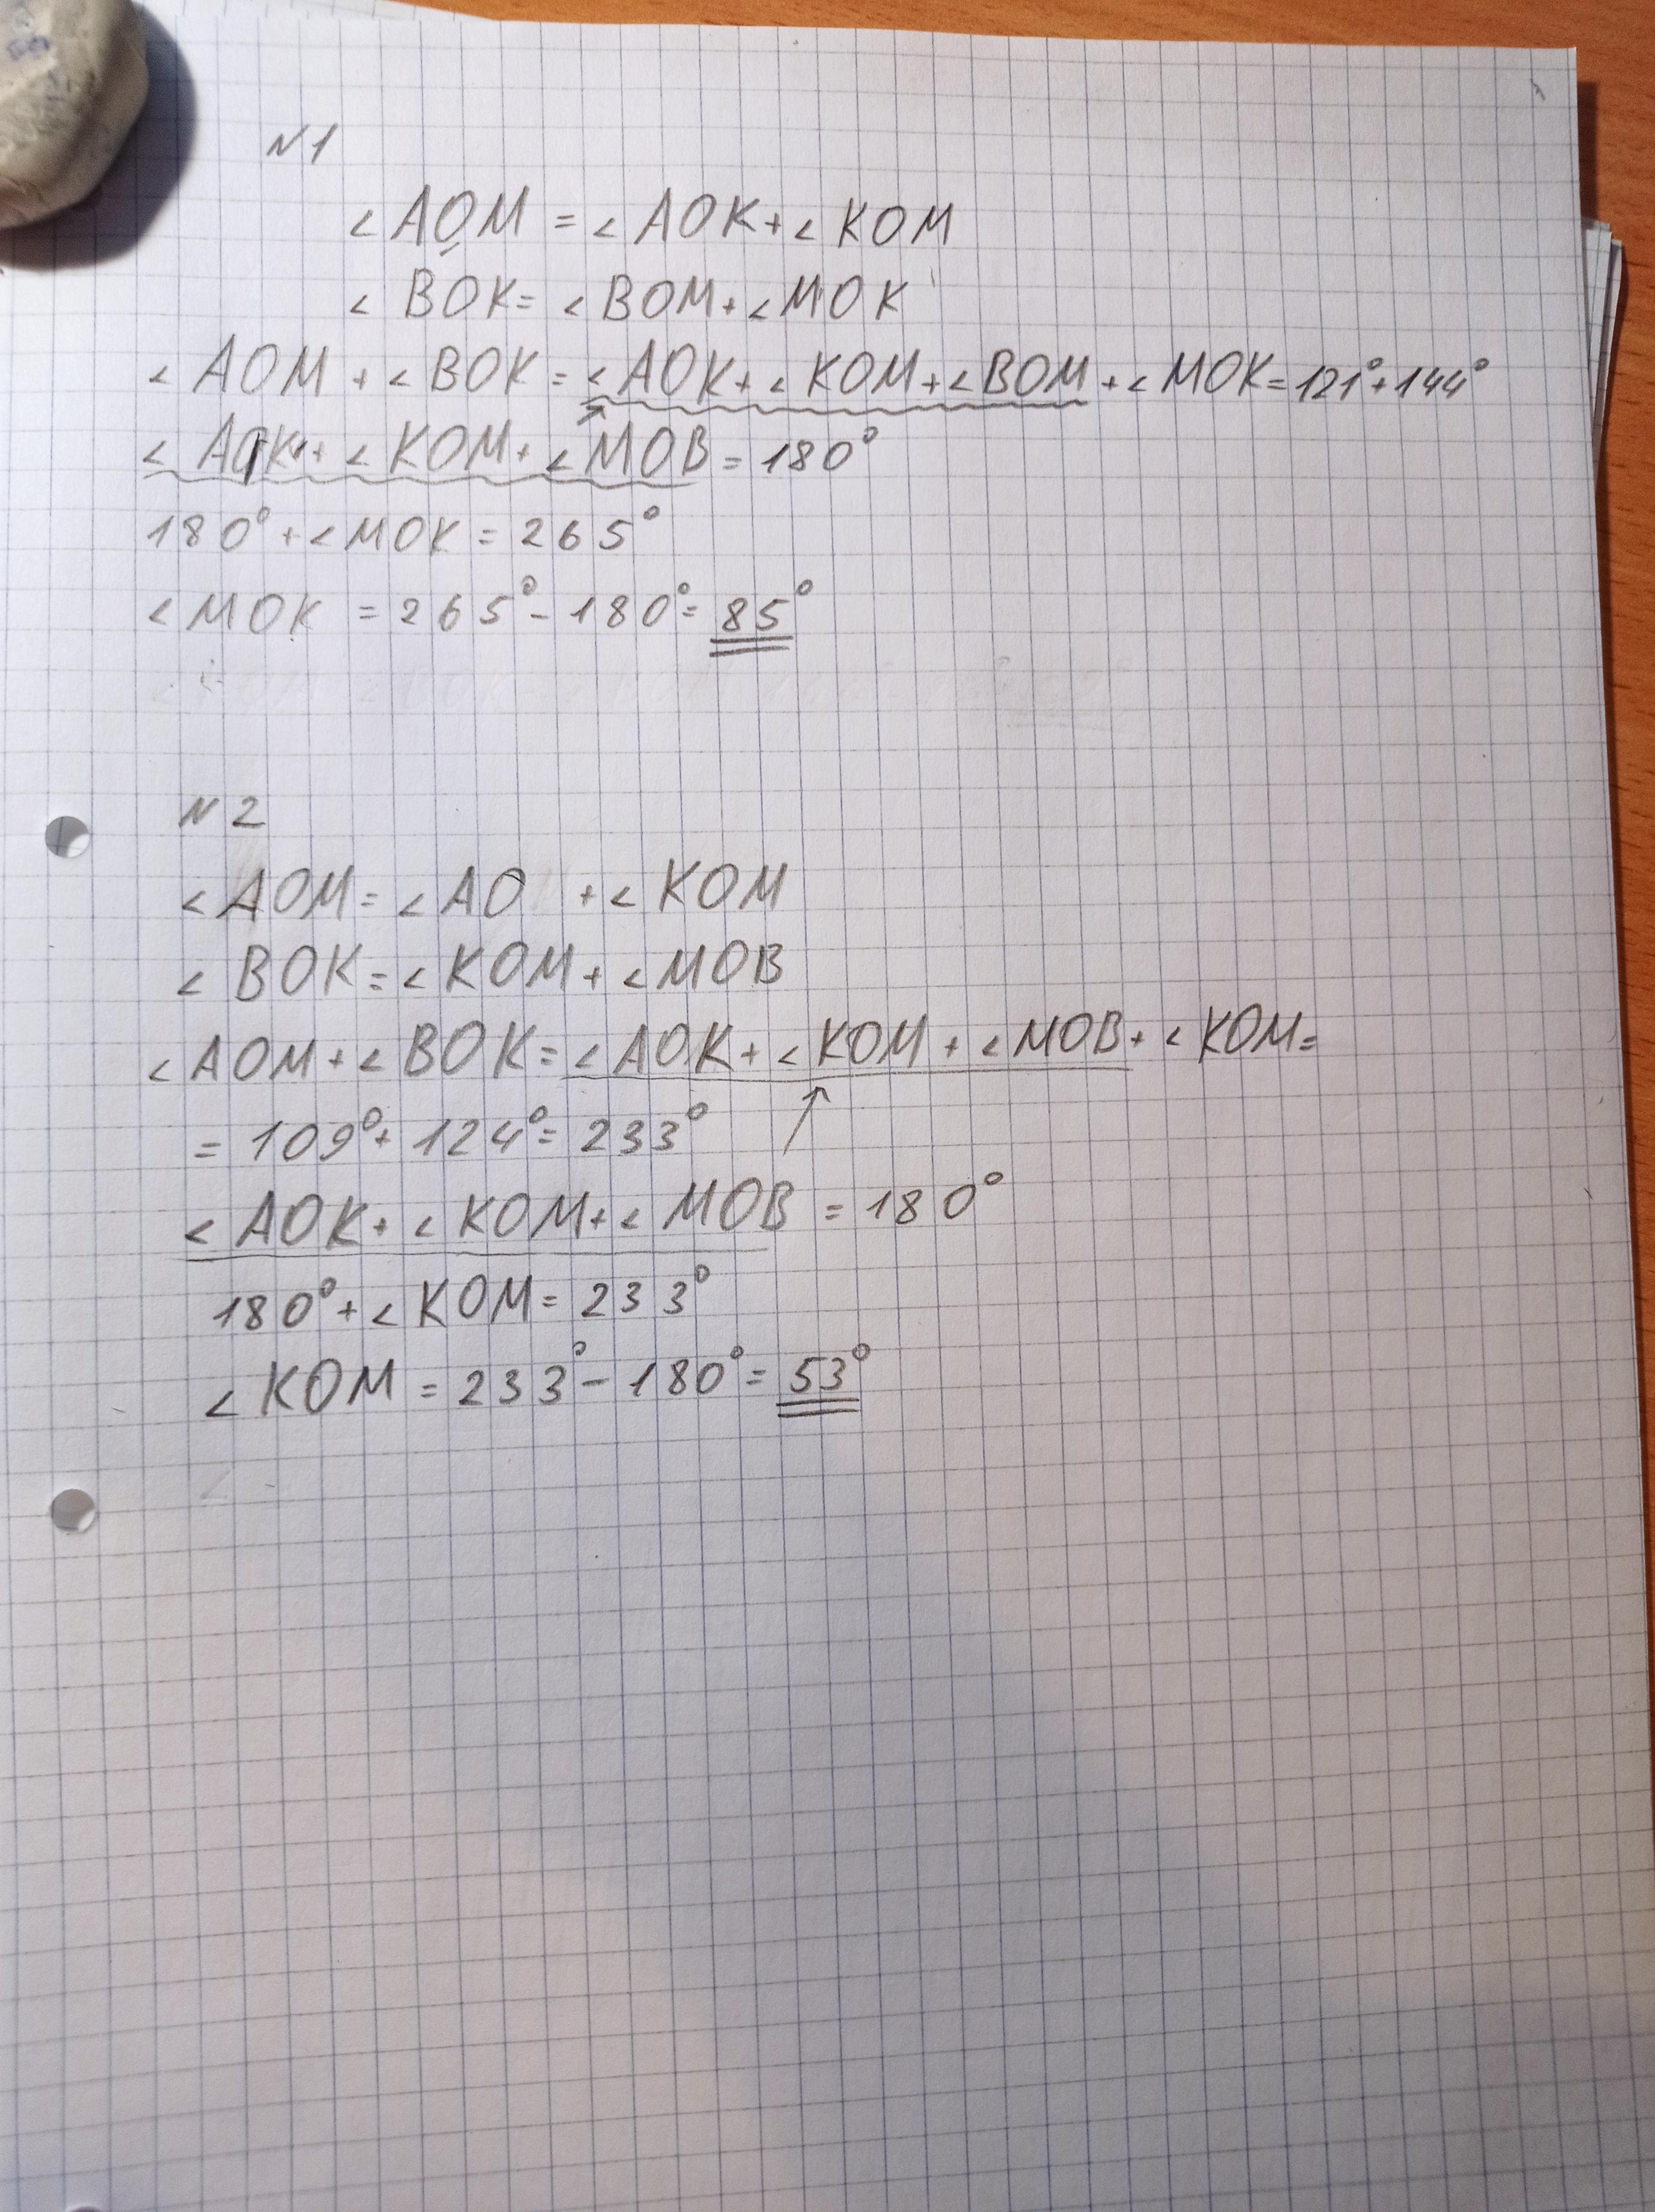 N1
∠AOM = ∠AOK + ∠KOM
∠BOK = ∠BOM + ∠MOK
∠AOM + ∠BOK = ∠AOK + ∠KOM + ∠BOM + ∠MOK = 121° + 144°
∠AOK + ∠KOM + ∠MOB = 180°
180° + ∠MOK = 265°
∠MOK = 265° - 180° = 85°
N2
∠AOM = ∠AO + ∠KOM
∠BOK = ∠KOM + ∠MOB
∠AOM + ∠BOK = ∠AOK + ∠KOM + ∠MOB + ∠KOM =
= 109° + 124° = 233°
∠AOK + ∠KOM + ∠MOB = 180°
180° + ∠KOM = 233°
∠KOM = 233° - 180° = 53°